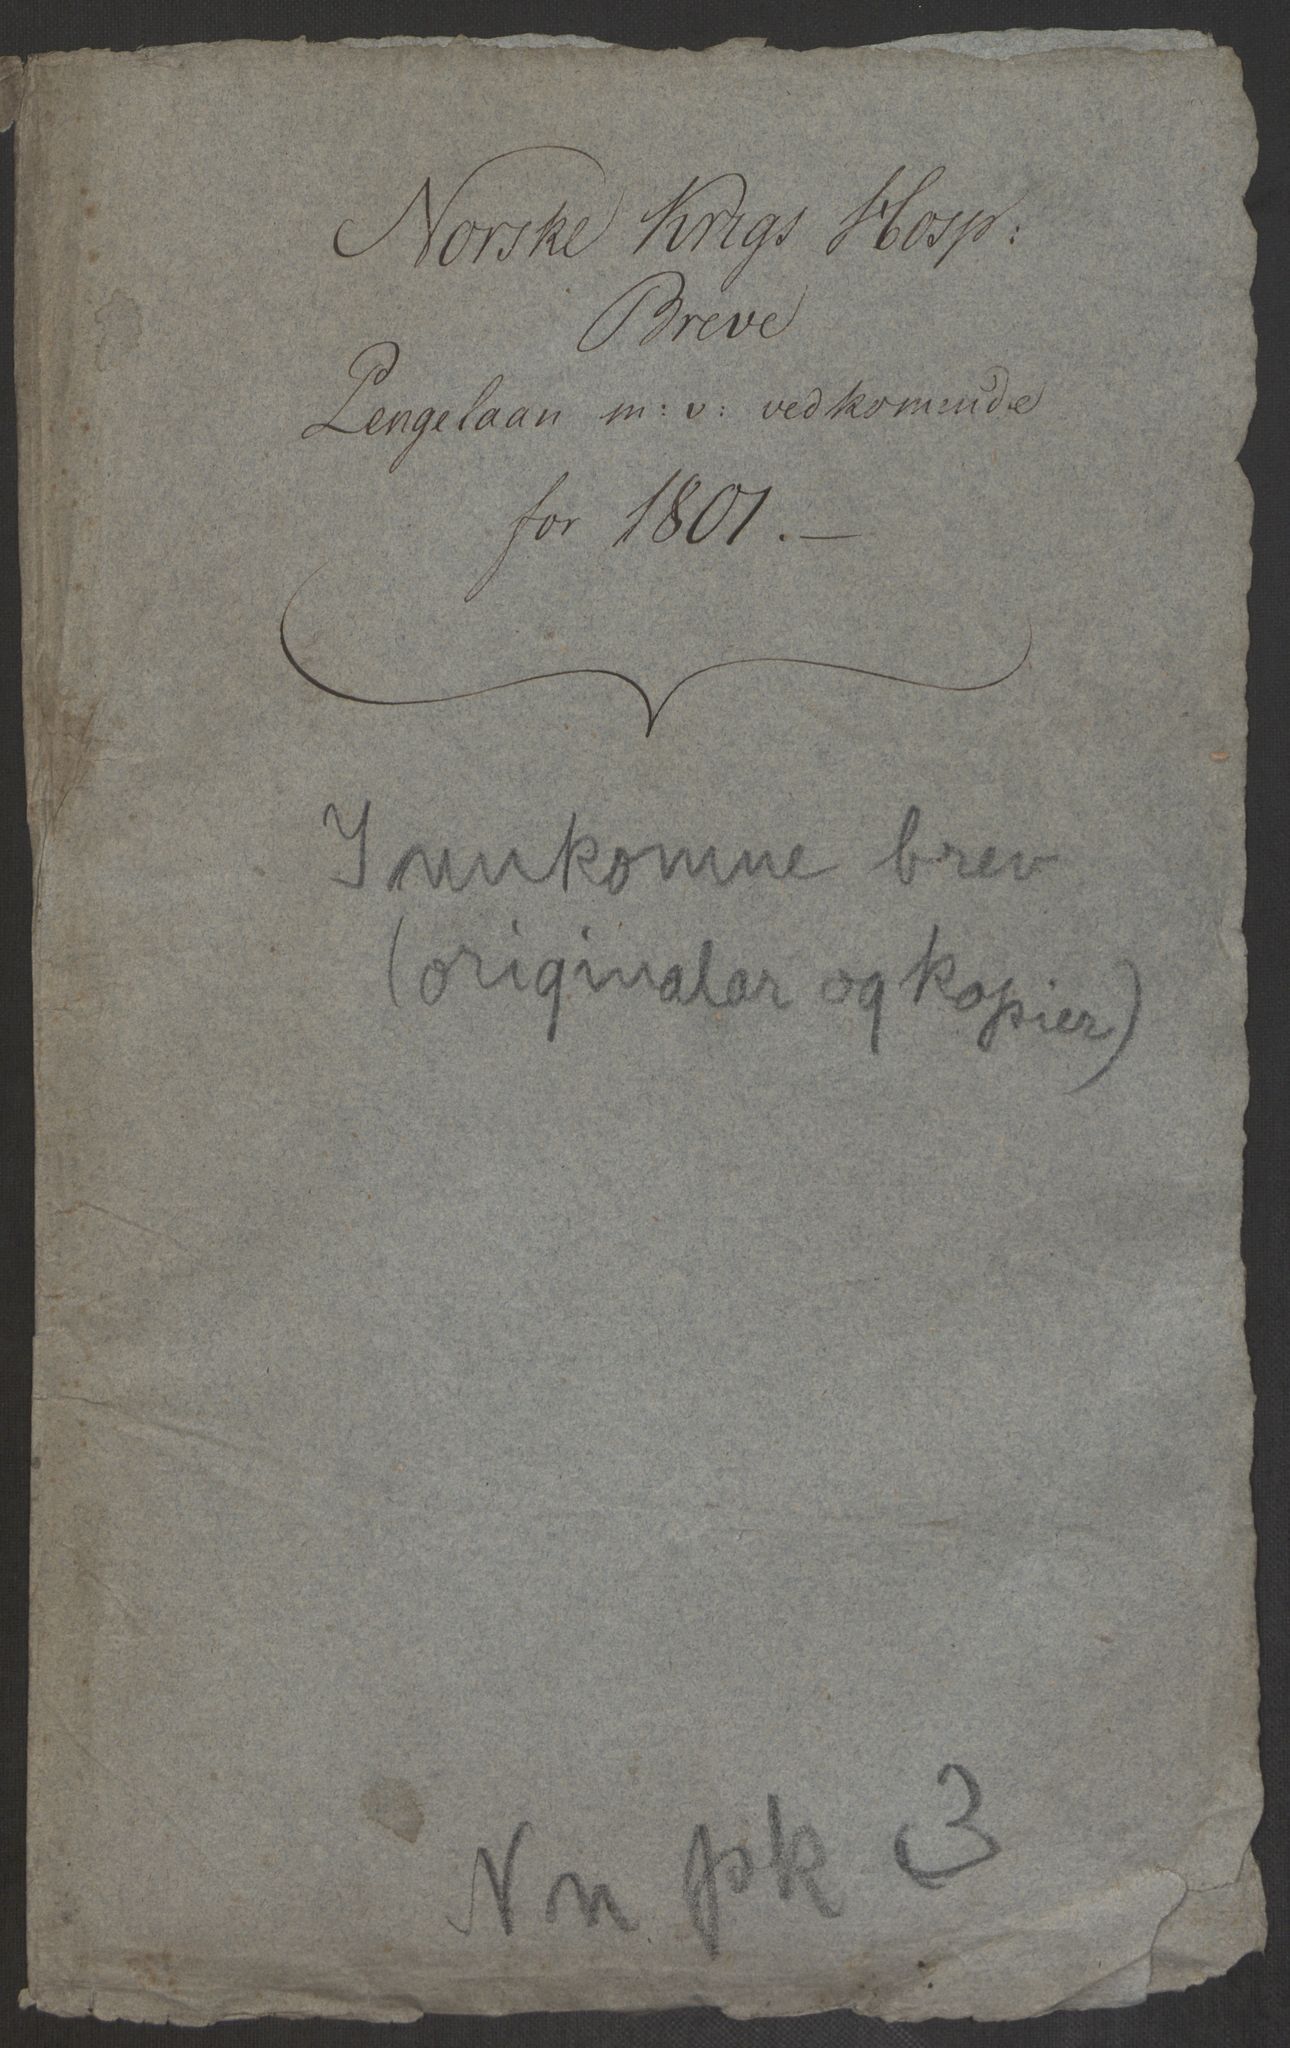 Norske Krigs Hosp:
Breve
Pengelaan m: v: vedkomende
for 1801. —
Innkomne brev
(originalar og kopier)
Nn pk 3